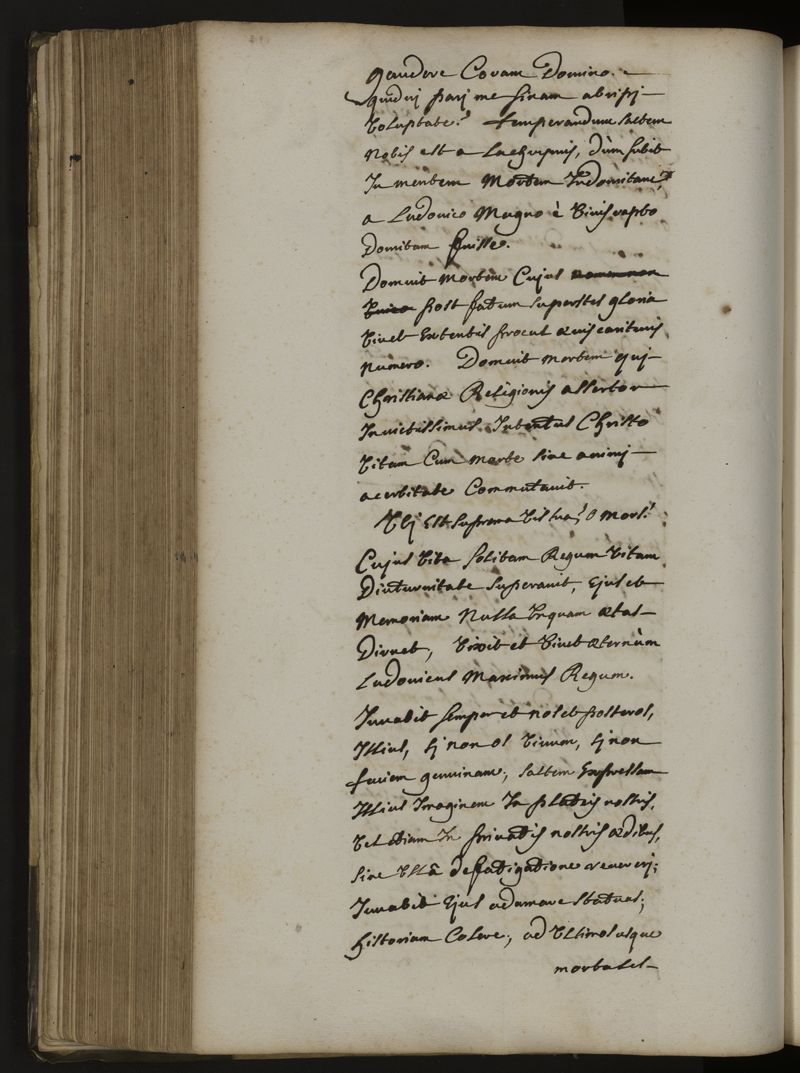 gaudere Coram Domino.
quid vj parj me sinam abripj
Voluptate? temperandum saltem
Nobis est a Lachrymis, dùm subit
In mentem Mortem Indomitam,
a Ludovico Magno è Vivis rapto
Domitam fuisse.
Domuit mortem Cujus
post fatum superstes gloria
Vivet Extentis procul ævis carituris
Numero. Domuit mortem quj
Christianæ Religionis assertor
Invictissimus. Intentus Christo
Vitam Cum Morte sine animj
acerbitate Commutavit.
Vbj Est suprema Vis tua? O Mors?
Cujus Vita solitam Regum Vitam
Diuturnitate superavit, Ejus et
Memoriam Nulla Vnquam ætas
Diruet, Vixit et Vivet æternùm
Ludovicus Maximus Regum.
Juvabit semper et nos et posteros,
Illius, sj non os Vivum, sj non
faciem genuinam, saltem Expressam
Illius Imaginem In plateis nostris,
Vel etiam In privatis nostris ædibus,
sine Vllâ defatigatione reverrerj;
Juvabit Ejus adamare statuas;
historiam Colere, ad Vltimos usque
mortales